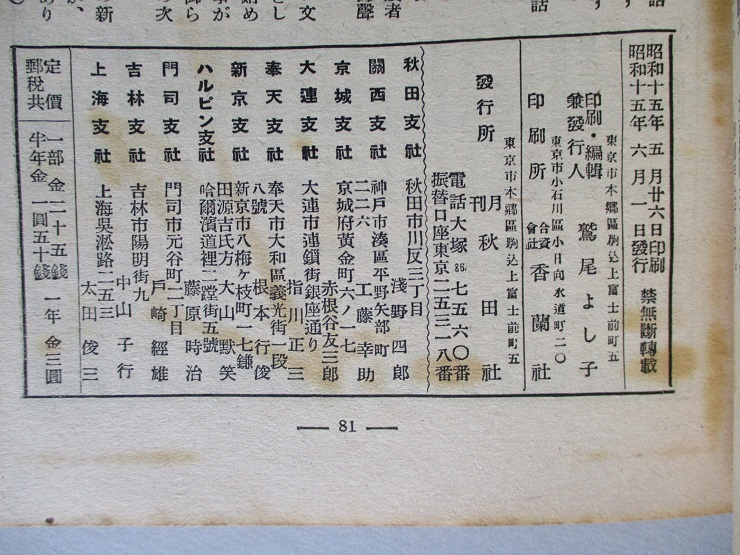 昭和十五年 五月廿六日印刷
昭和十五年 六月一日發行
禁無斷轉載
東京市本鄕區駒込上富士前町五
印刷・編輯
兼發行人
鷲尾よし子
東京市小石川區小日向水道町二〇
印刷所 合資會社 香蘭社
東京市本鄕區駒込上富士前町五
發行所 月刊 秋田社
電話大塚(86)七五六〇番
振替口座東京二五三一八番
秋田支社 秋田市川反三丁目
淺野四郎
關西支社 神戸市湊區平野矢部町
二二六 工藤幸助
京城支社 京城府黃金町六ノ一七
赤根谷友三郎
大連支社 大連市連鎖街銀座通り
指川正三
奉天支社 奉天市大和區義光街一段
八號 根本行俊
新京支社 新京市八梅ヶ枝町一七鎌
田源吉氏方 大山默笑
ハルピン支社 哈爾濱道裡二蹚街五號
藤原時治
門司支社 門司市元谷町二丁目
戶崎經雄
吉林支社 吉林市陽明街九
中山子行
上海支社 上海吳淞路二五三
太田俊三
定價 一部 金二十五錢 一年 金三圓
郵稅共 半年金 一圓五十錢
— 81 —